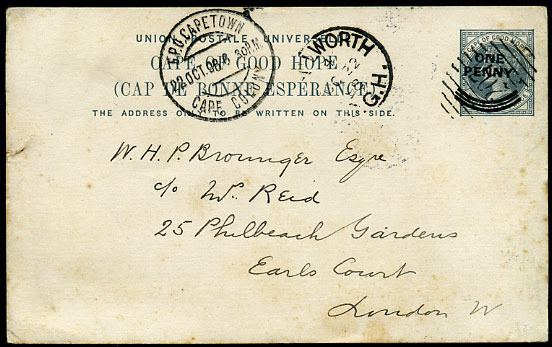 UNION POSTALE UNIVERSELLE.
CAPE OF GOOD HOPE
(CAP DE BONNE ESPERANCE)
THE ADDRESS ONLY TO BE WRITTEN ON THIS SIDE.
G.P.O. CAPETOWN
22 OCT 98 8 30PM
CAPE COLONY
WORTH
H.G.
CAPE OF GOOD HOPE
ONE
PENNY
W. H. P. Esqre
c/o W. Reid
25 Philbeach Gardens
Earls Court
London W